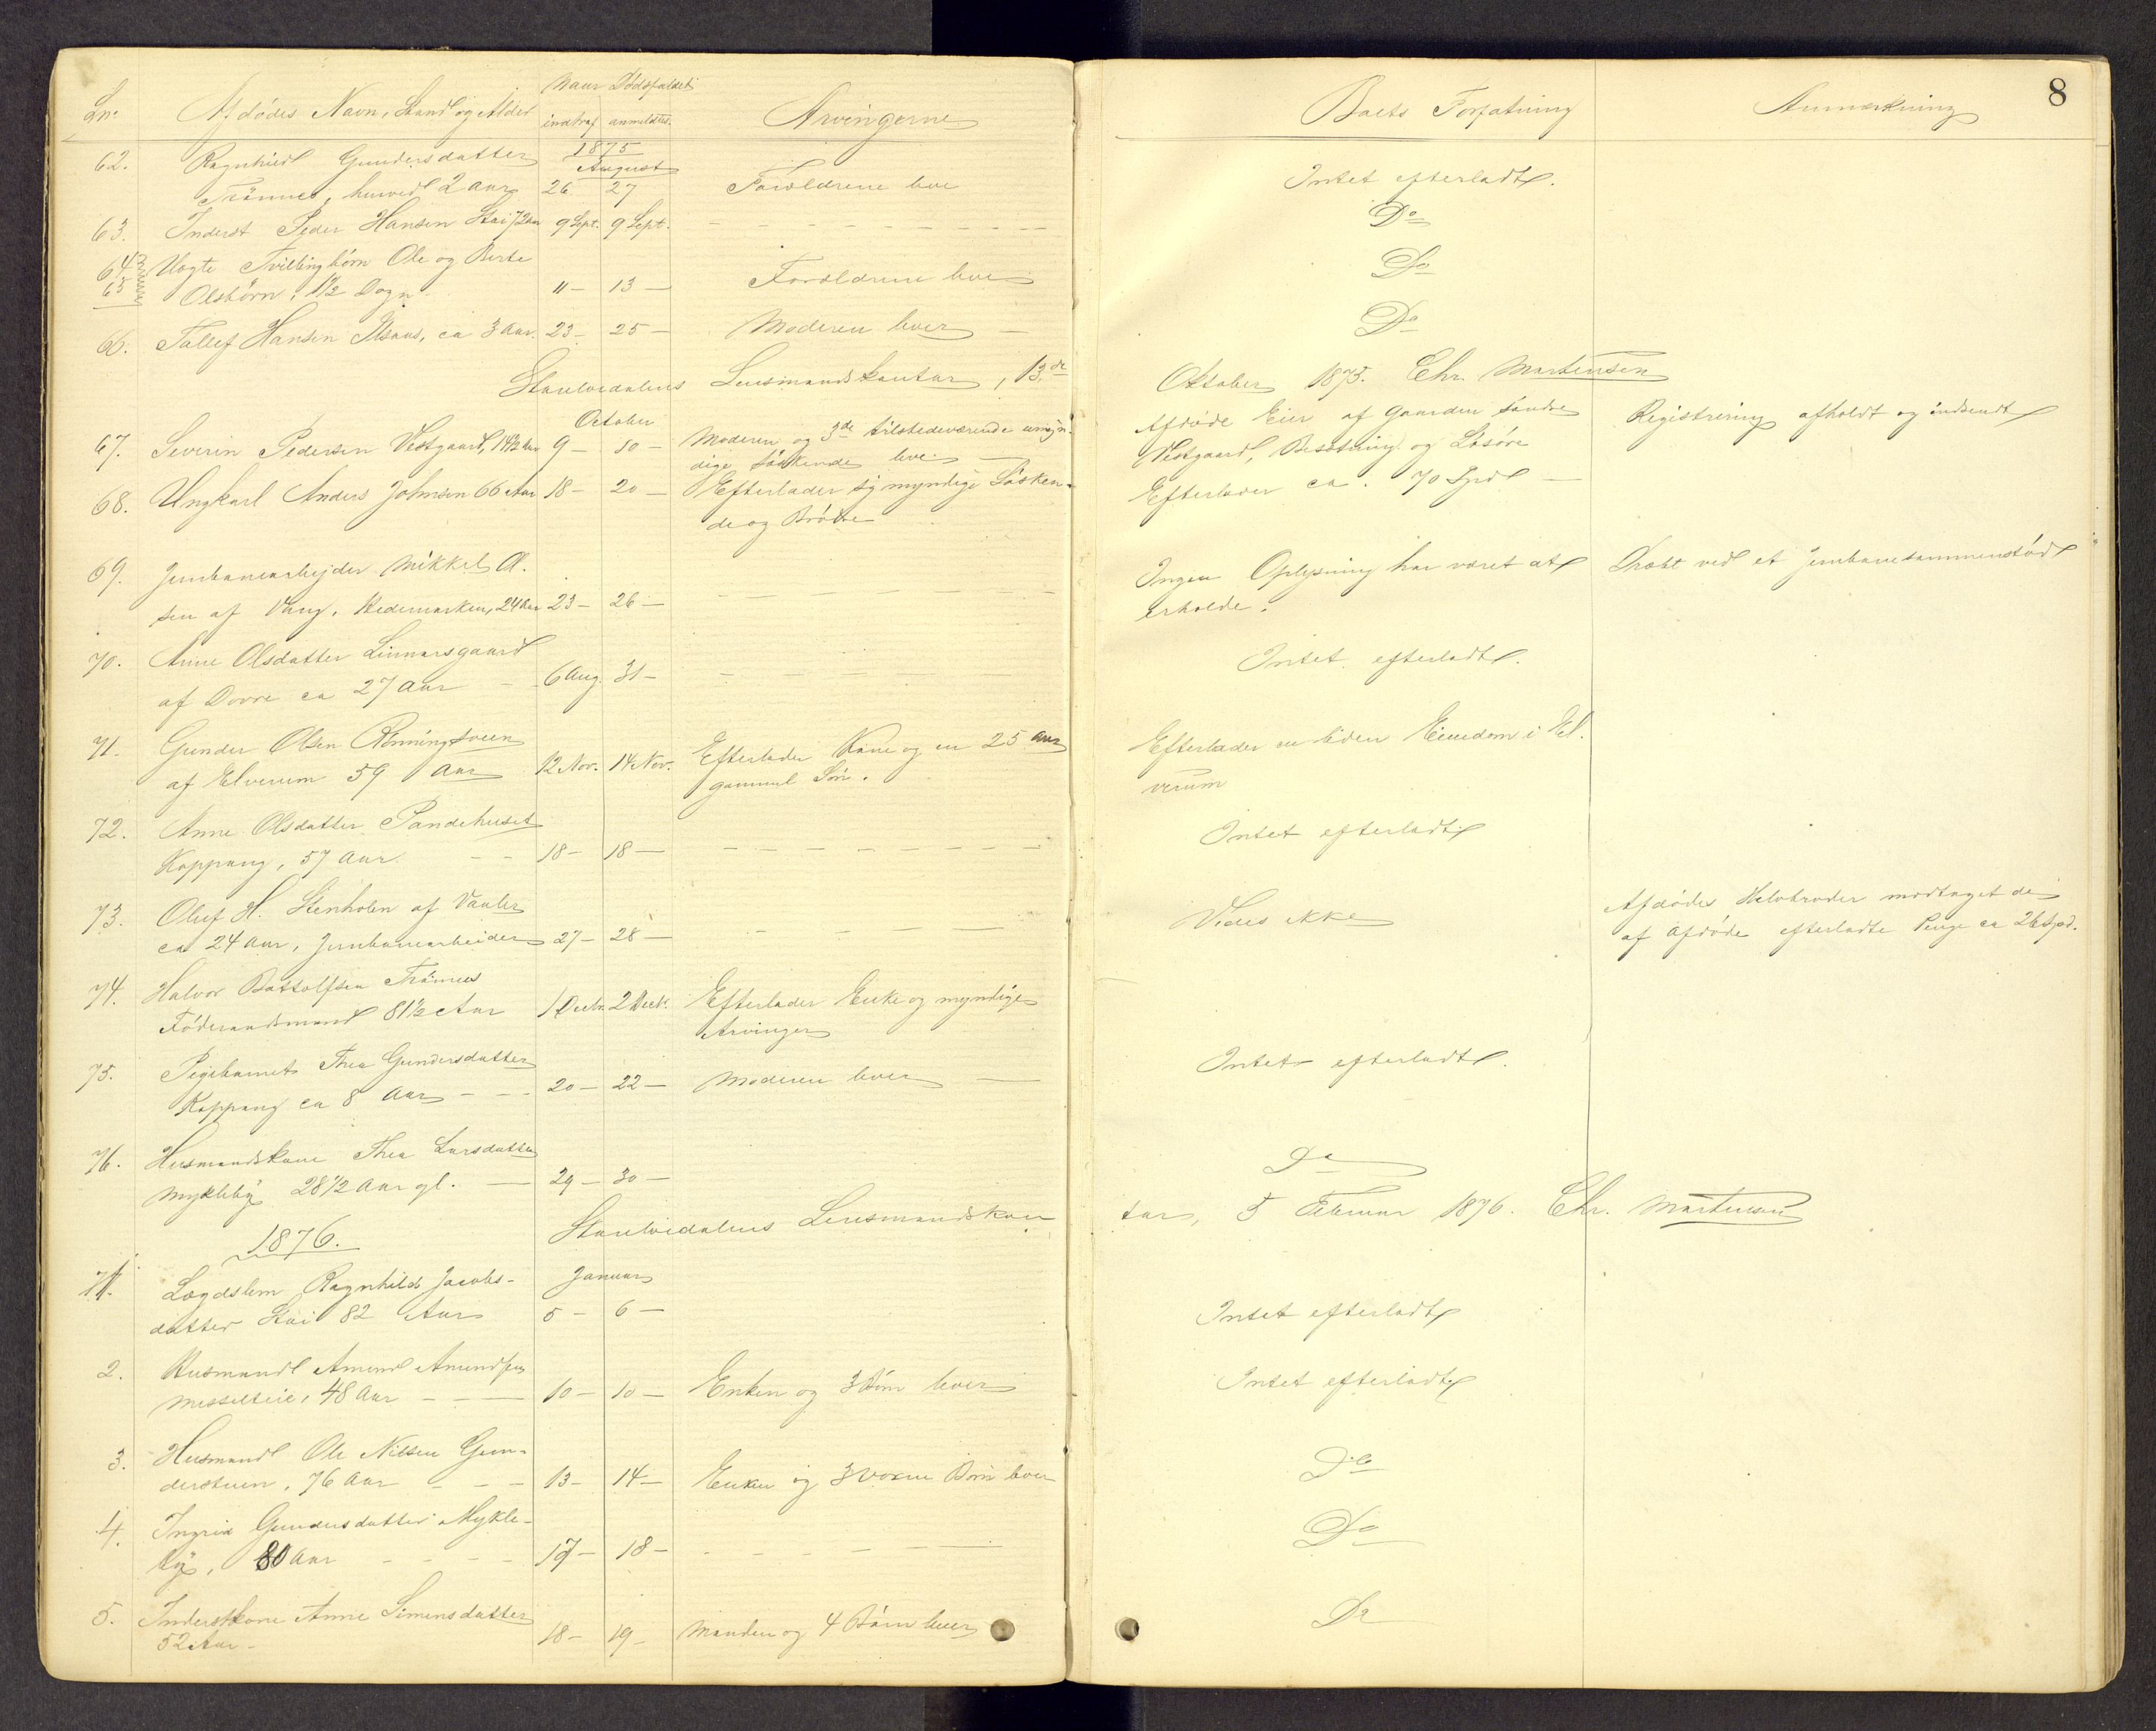 8
Lnr. Afdödes Navn, Stand og Alder Naar Dödsfaldet indtraf anmeldtes. Arvingerne Boets Forfatning Anmærkning
1875
August
62. Ragnhild Gundersdatter
Trönnes, hurved 2 Aar 26 27 Forældrene leve Intet efterladt.
63. Inderst Peder Hansen Stai 72 Aar 9 Sept. 9 Sept. Do
64 Uægte Tvillingbörn Ole og Berte
65 Olsbörn, 1 1/2 Døgn 11 13 Forældrene leve Do
66. Tollef Hansen ca 3 Aar. 23 25 Moderen lever Do
Storelvedalens Lensmandskontor, 13de Oktober 1875. Chr. Martensen
October
67. Severin Pedersen Vestgaard, 14 1/2 Aar 9 10 Moderen og 3de tilstedeværende umyn- Afdöde Eier af Gaarden söndre Registrering afholdt og indsendt
dige Söskende leve Vestgaard, Besætning og Lösöre
68. Ungkarl Anders Johnsen 66 Aar 18 20 Efterlader sig myndige Sösken- Efterlader ca. 70 Spd
de og Brödre
69. Jernbanearbejder Mikkel Ol- Ingen Oplysning har været at Dræbt ved et Jernbanesammenstöd
sen af Vang, Hedemarken, 24 Aar 23 26 erholde.
70. Anne Olsdatter Linnersgaard
af Dovre ca 27 Aar 6 Aug. 31 Intet efterladt.
71. Gunder Olsen Rönningsveen Efterlader Kone og en 25 Aar Efterlader en liden Eiendom i El-
af Elverum 59 Aar 12 Nov. 14 Nov. gammel Sön. verum
72. Anne Olsdatter Sandehuset
Koppang, 57 Aar 18 18 Intet efterladt
73. Oluf H. Stenholen af Vaaler Vides ikke Afdödes Halvbroder modtaget de
ca 24 Aar, Jernbanearbeider 27 28 af Afdöde efterladte Penge ca 26 Spd.
74. Halvor Bottolfsen Trönnes
Föderaadsmand 81 1/2 Aar 1 Decbr. 2 Decbr. Efterlader Enke og myndige
Arvinger
75. Pigebarnet Thea Gundersdatter
Koppang ca 8 Aar 20 22 Moderen lever Intet efterladt.
76. Husmandskone Thea Larsdatter
Mykleby 28 1/2 Aar gl. 29 30 Do
Storelvedalens Lensmandskon- tor, 5 Februar 1876. Chr. Martensen
1876.
Januar
1. Lægdslem Ragnhild Jacobs-
datter Stai 82 Aar 5 6 Intet efterladt
2. Husmand Amund Amundsen
Messelteie, 48 Aar 10 10 Enken og 3 Börn lever Intet efterladt
3. Husmand Ole Nilsen Gun-
derstuen, 76 Aar 13 14 Enken og 3 voxne Börn lever Do
4. Ingrid Gundersdatter Mykle-
by, 80 Aar 17 18 Do
5. Inderstkone Anne Simensdatter
52 Aar 18 19 Manden og 4 Börn lever Do